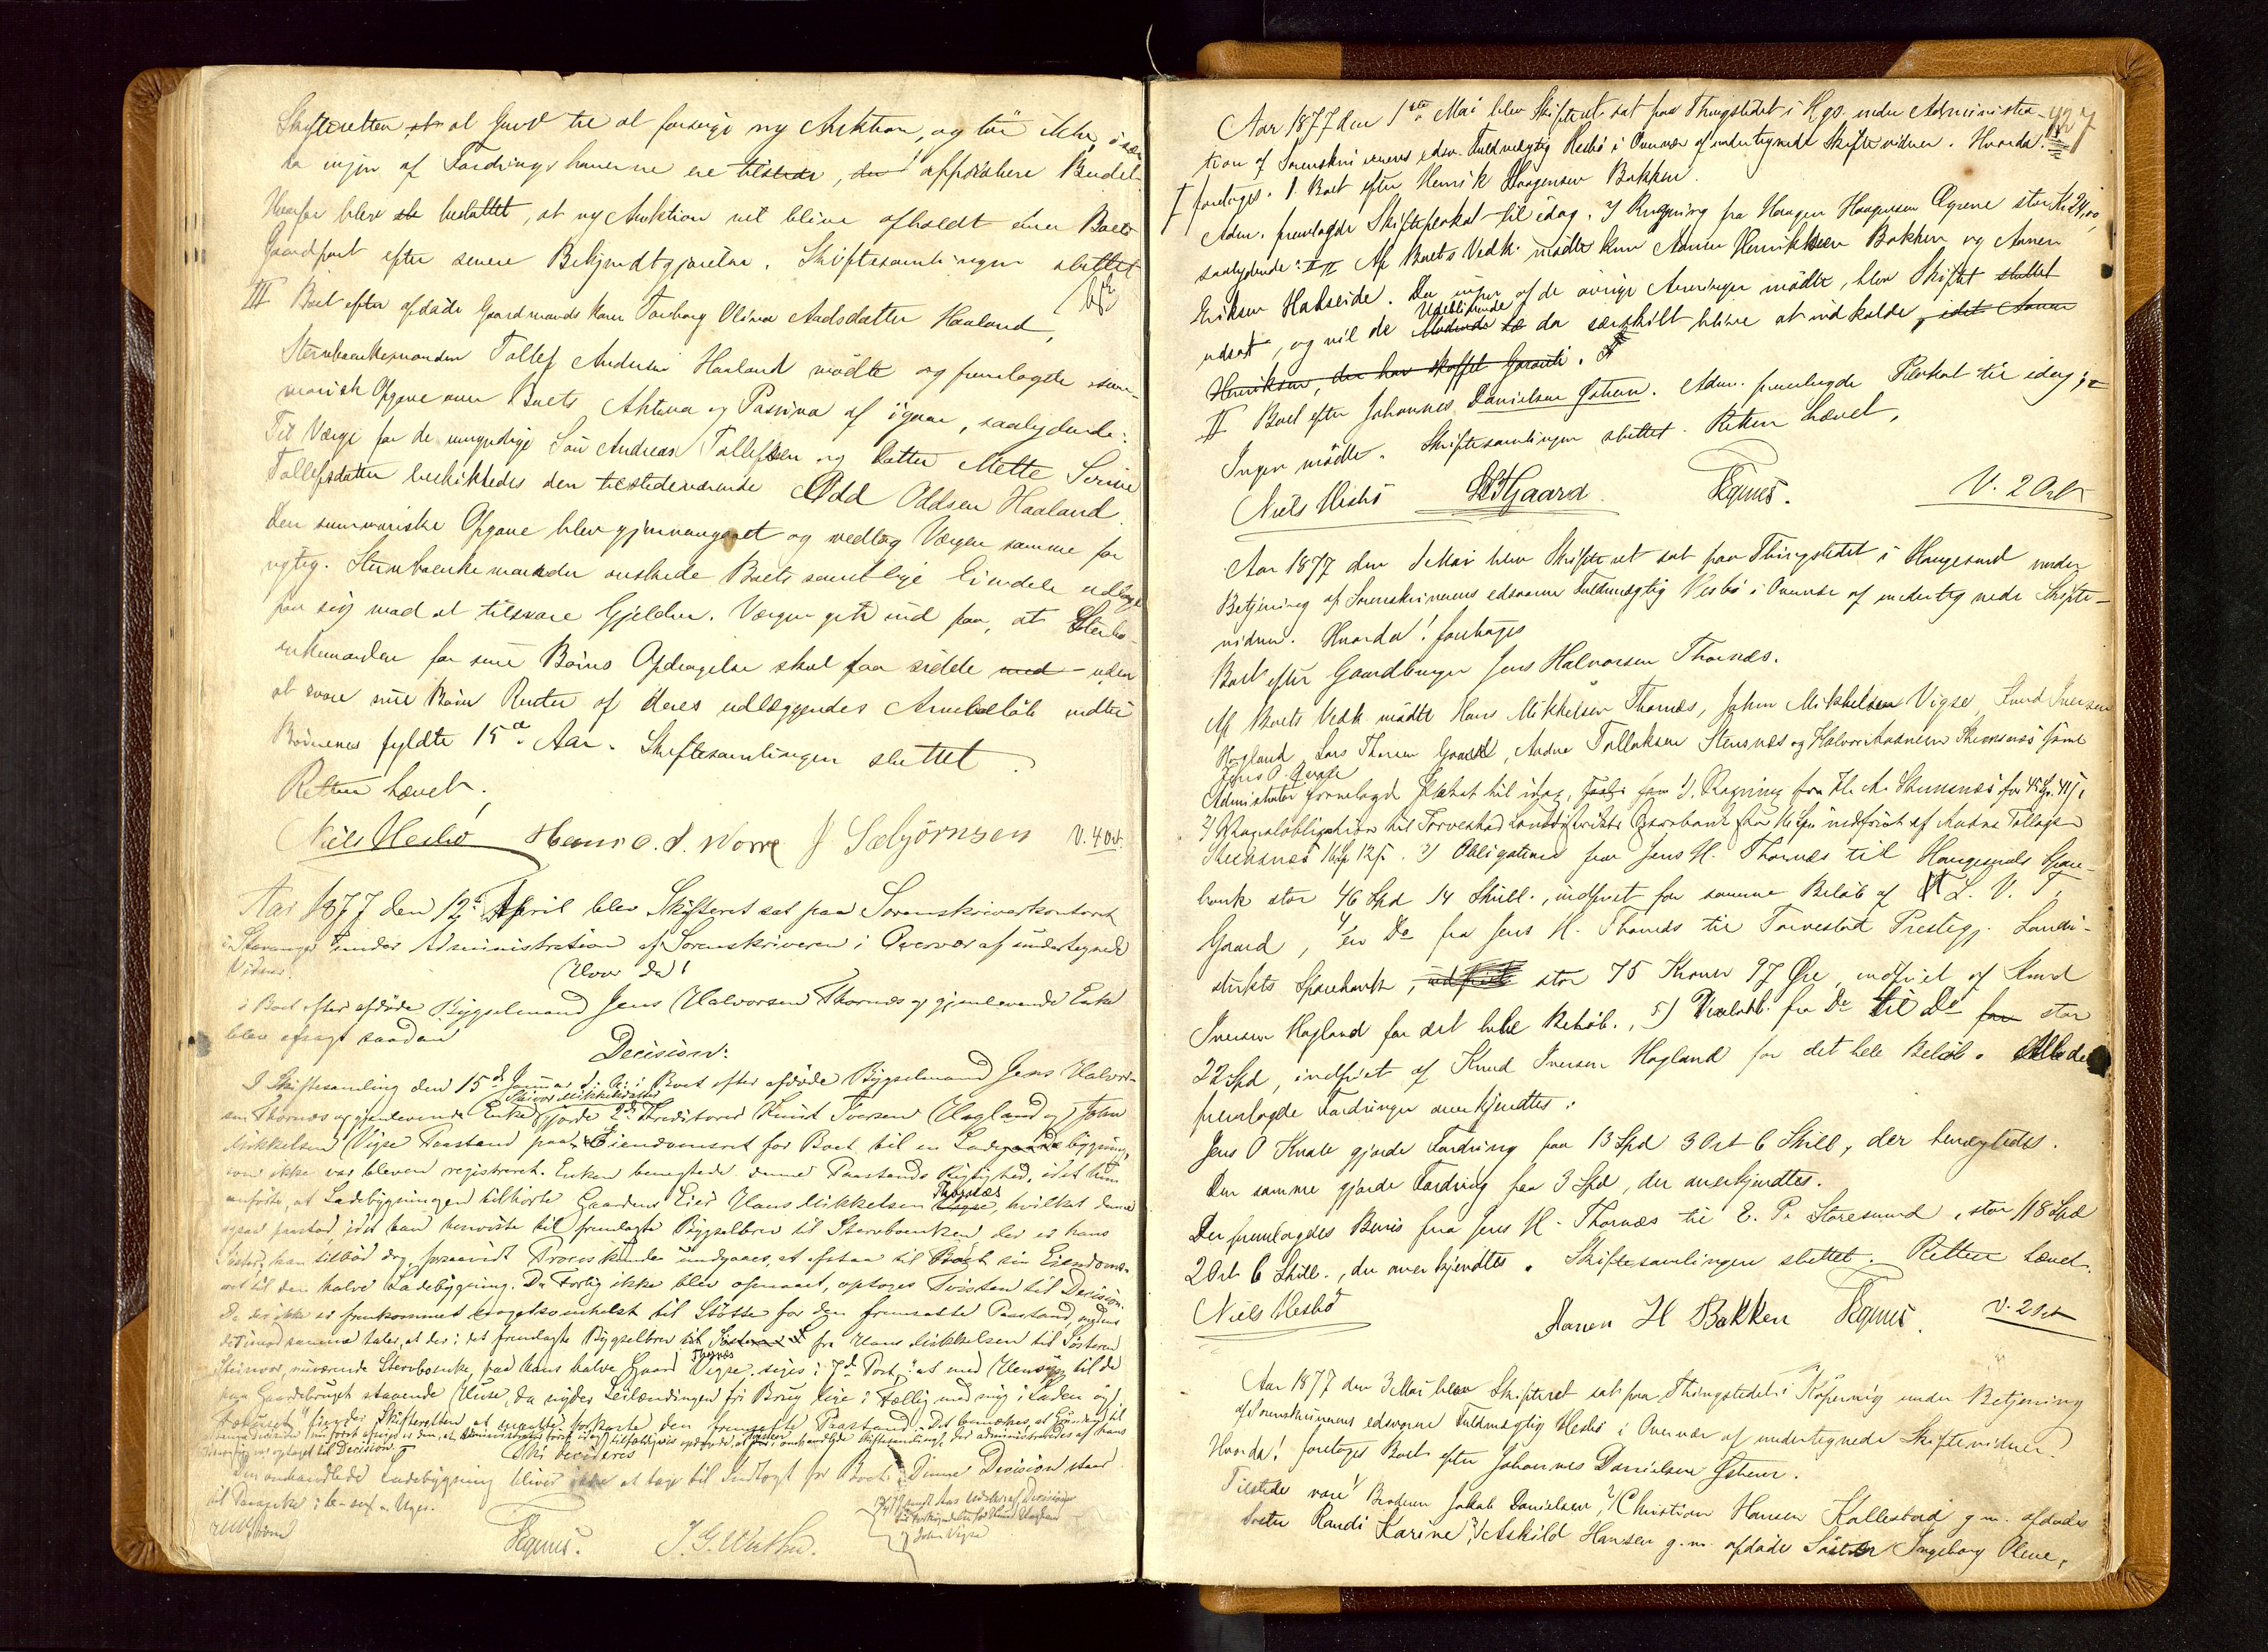 Skifteretten at Guvd til at forsøge ny Auktion, og tør ikke, især
da ingen af Fordringshaverne ere tilstede, approbere Budet.
Herfor blev besluttet, at ny Auktion vil blive afholdt over Boets
Gaardpart efter senere Bekjendtgjørelse. Skiftesamlingen sluttet
III Boet efter afdøde Gaardmands Kone Torborg Oline Aadsdatter Haaland,
Stervboenkemanden Tollef Andersen Haaland mødte og fremlagde sum-
marisk Opgave over Boets Aktiva og Passiva af igaar, saalydende:
Til Værge for de umyndige Søn Andreas Tollefsen og Datter Mette Serine
Tollefsdatter beskikkedes den tilstedeværende Odd Oddsen Haaland.
Den summariske Opgave blev gjennemgaaet og vedtog Værgen samme for
rigtig. Stervboenkemanden ønskede Boets samtlige Eiendele udlagt
for sig mod at tilsvare Gjælden. Værgen gik ind paa, at Stervbo-
enkemanden for sine Børns Opdragelse skal faa sidde med uden
at svare sine Børn Renter af deres udlæggendes Arvebeløb indtil
Børnenes fyldte 15de Aar. Skiftesamlingen sluttet.
Retten hævet.
Niels Hesbø Hans O. S. Worre J Sæbjörnsen V. 4 Ort.
Aar 1877 den 12te April blev Skifteret sat paa Sorenskriverkontoret
i Stavanger under Administration af Sorenskriveren i Overvær af undertegnede
Vidner. Hvor da!
i Boet efter afdøde Bygselmand Jens Halvorsen Thornæs og gjenlevende Enke
blev afsagt saadan
Decision:
I Skiftesamling den 15de Januar d. A. i Boet efter afdøde Bygselmand Jens Halvor-
sen Thornæs og gjenlevende Enke Steinvor Mikkelsdatter gjorde 2de Kreditorer Knud Iversen Hagland og John
Mikkelsen Vigse Paastand paa Eiendomsret for Boet til en Ladebygning,
som ikke var bleven registreret. Enken benegtede denne Paastands Rigtighed, idet hun
anførte, at Ladebygningen tilhørte Gaardens Eier Hans Mikkelsen Thornæs, hvilket denne
ogsaa paastod, idet han henviste til fremlagte Bygselbrev til Stervboenken, der er hans
Søster; han tilbød dog, forsaavidt Proces kunde undgaaes, at afstaa til Boet sin Eiendoms-
ret til den halve Ladebygning. Da Forlig ikke blev opnaaet, optoges Tvisten til Decision.
Da der ikke er fremkommet nogetsomhelst til Støtte for den fremsatte Paastand, medens
derimod samme taler, at der i det fremlagte Bygselbrev fra Hans Mikkelsen til Søsteren
Steinvor, nuværende Stervboenke, paa hans halve Gaard Thornæs siges i 7de Post, "at med Hensyn til de
paa Gaardebruget staaende Huse, da nyder Leilændingen fri Brug lige i Fællig med mig i Laden og
Fæhuset" finder Skifteretten at maatte forkaste den fremsatte Paastand. Det bemærkes, at Grunden til
Thi decideres
Den omhandlede Ladebygning bliver ikke at tage til Indtægt for Boet. Denne Decision staar
til Paaanke i 6-sex-Uger.
Tegnes. J. G. Wathne.
427
Aar 1877 den 1ste Mai blev Skifteret sat paa Thingstedet i Hgs. under Administra-
tion af Sorenskriverens edsv. Fuldmægtig Hesbø i Overvær af undertegnede Skiftevidner. Hvorda!
foretages. I Boet efter Henrik Haagensen Bakken.
Adm. fremlagde Skifteplakat til idag. 2) Regning fra Haagen Haagensen Øyrene stor Kr 24,00,
saalydende: Af Boets Vedk. mødte kun Aanen Henriksen Bakken og Aanen
Eriksen Hakseide. Da ingen af de øvrige Arvinger mødte, blev Skiftet sluttet
udsat, og vil de Udeblivende da særskilt blive at indkalde, idet Aanen
Henriksen, der har skaffet Garanti.
II Boet efter Johannes Danielsen Østhem. Adm. fremlagde Plakat til idag;
Ingen mødte. Skiftesamlingen sluttet. Retten hævet.
Niels Hesbø Gaard Tegnes. V. 2 Ort
Aar 1877 den 1 Mai blev Skifteret sat paa Thingstedet i Haugesund under
Betjening af Sorenskriverens edsvorne Fuldmægtig Hesbø i Overvær af undertegnede Skifte-
vidner. Hvorda! foretages
Boet efter Gaardbruger Jens Halvorsen Thornæs.
Af Boets Vedk. mødte Hans Mikkelsen Thornæs, John Mikkelsen Vigse, Knud Iversen
Hagland, Lars Thorsen Gaard, Andne Tollaksen Stensnæs og Halvor Andnesen samt
Jens O. Kvale
Administrator fremlagde Plakat til idag, 1). Regning fra
2) til Torvestad Landdistrikts Sparebank indfriet af Andne Tollagsen
Stensnæs 16 Sp 12 s. 3) Obligation fra Jens H. Thornæs til Haugesunds Spare-
bank stor 46 Spd 14 Skill., indfriet for samme Beløb af L. V. T.
Gaard, 4/ En Do fra Jens H. Thornæs til Torvestad Prestegj. Landdi-
strikts Sparebank, stor 75 Kroner 97 Øre, indfriet af Knud
Iversen Hagland for det hele Beløb., 5) Vexelobl. fra Do til Do for stor
22 Spd, indfriet af Knud Iversen Hagland for det hele Beløb. Alle de
fremlagde Fordringer anerkjendtes:
Jens O Kvale gjorde Fordring paa 13 Spd 3 Ort 6 Skill, der benægtedes.
Den samme gjorde Fordring paa 3 Spd, der anerkjendtes.
Der fremlagdes Bevis fra Jens H. Thornæs til E. P. Storesund, stor 118 Spd
2 Ort 6 Skill., der anerkjendtes. Skiftesamlingen sluttet. Retten hævet.
Niels Hesbø Aanen H Bakken Tegnes. V. 2 Ort
Aar 1877 den 3 Mai blev Skifteret sat paa Thingstedet i Kopervig under Betjening
af Sorenskriverens edsvorne Fuldmægtig Hesbø i Overvær af undertegnede Skiftevidner.
Hvorda! foretoges Boet efter Johannes Danielsen Østhem.
Tilstede vare 1/ Broderen Jakob Danielsen, 2/ Christian Hansen Kallestad g. m. afdødes
Søster Randi Karine, 3/ Askild Hansen g. m. afdøde Søster Ingeborg Olene,